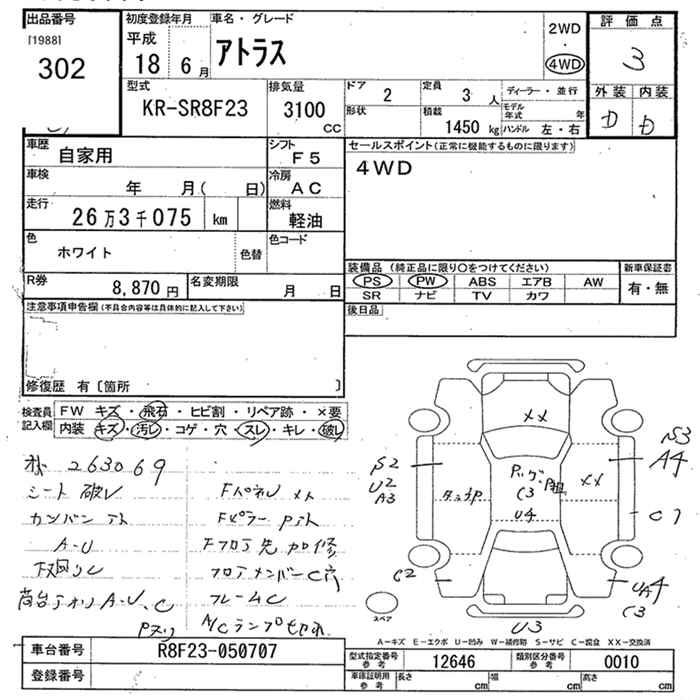 出品番号
[1988]
302
初度登録年月
平成
18 6月
車名・グレード
アトラス
2WD
・
4WD
評価点
3
外装 内装
D D
型式
KR-SR8F23
排気量
3100
CC
ドア 2
定員 3人
形状
積載 1450 kg
ディーラー・並行
モデル年式 年
ハンドル 左・右
車歴
自家用
シフト
F5
車検
年 月( 日)
冷房
AC
走行
26万3千075 km
燃料
軽油
色
ホワイト
色替
色コード
R券
8,870円
名変期限
月 日
セールスポイント(正常に機能するものに限ります)
4WD
装備品(純正品に限り○をつけてください)
新車保証書
PS PW ABS エアB AW
SR ナビ TV カワ
有・無
後日品
注意事項申告欄(不具合内容等は具体的に記入して下さい)
修復歴 有〔箇所 〕
検査員記入欄
FW キズ・飛石・ヒビ割・リペア跡・×要
内装 キズ・汚レ・コゲ・穴・スレ・キレ・破レ
263069
シート 破レ
A-U
下廻りC
フレームC
S2
U2
A3
××
C3
U4
××
S3
A4
C7
C2
UA4
C3
U3
スペア
A-キズ E-エクボ U-凹み W-補修跡 S-サビ C-腐食 XX-交換済
車台番号
R8F23-050707
登録番号
型式指定番号
参考
12646
類別区分番号
参考
0010
車庫証明用
参考
長さ cm
幅 cm
高さ cm